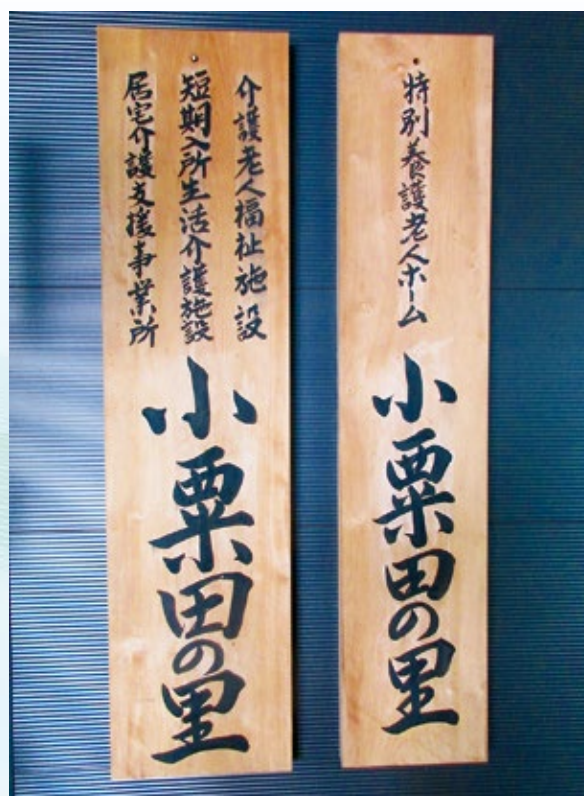 特別養護老人ホーム
小粟田の里
介護老人福祉施設
短期入所生活介護施設
居宅介護支援事業所
小粟田の里